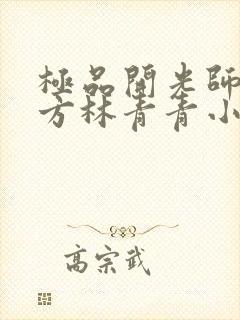 極品開光師
方林青青小
高宗武